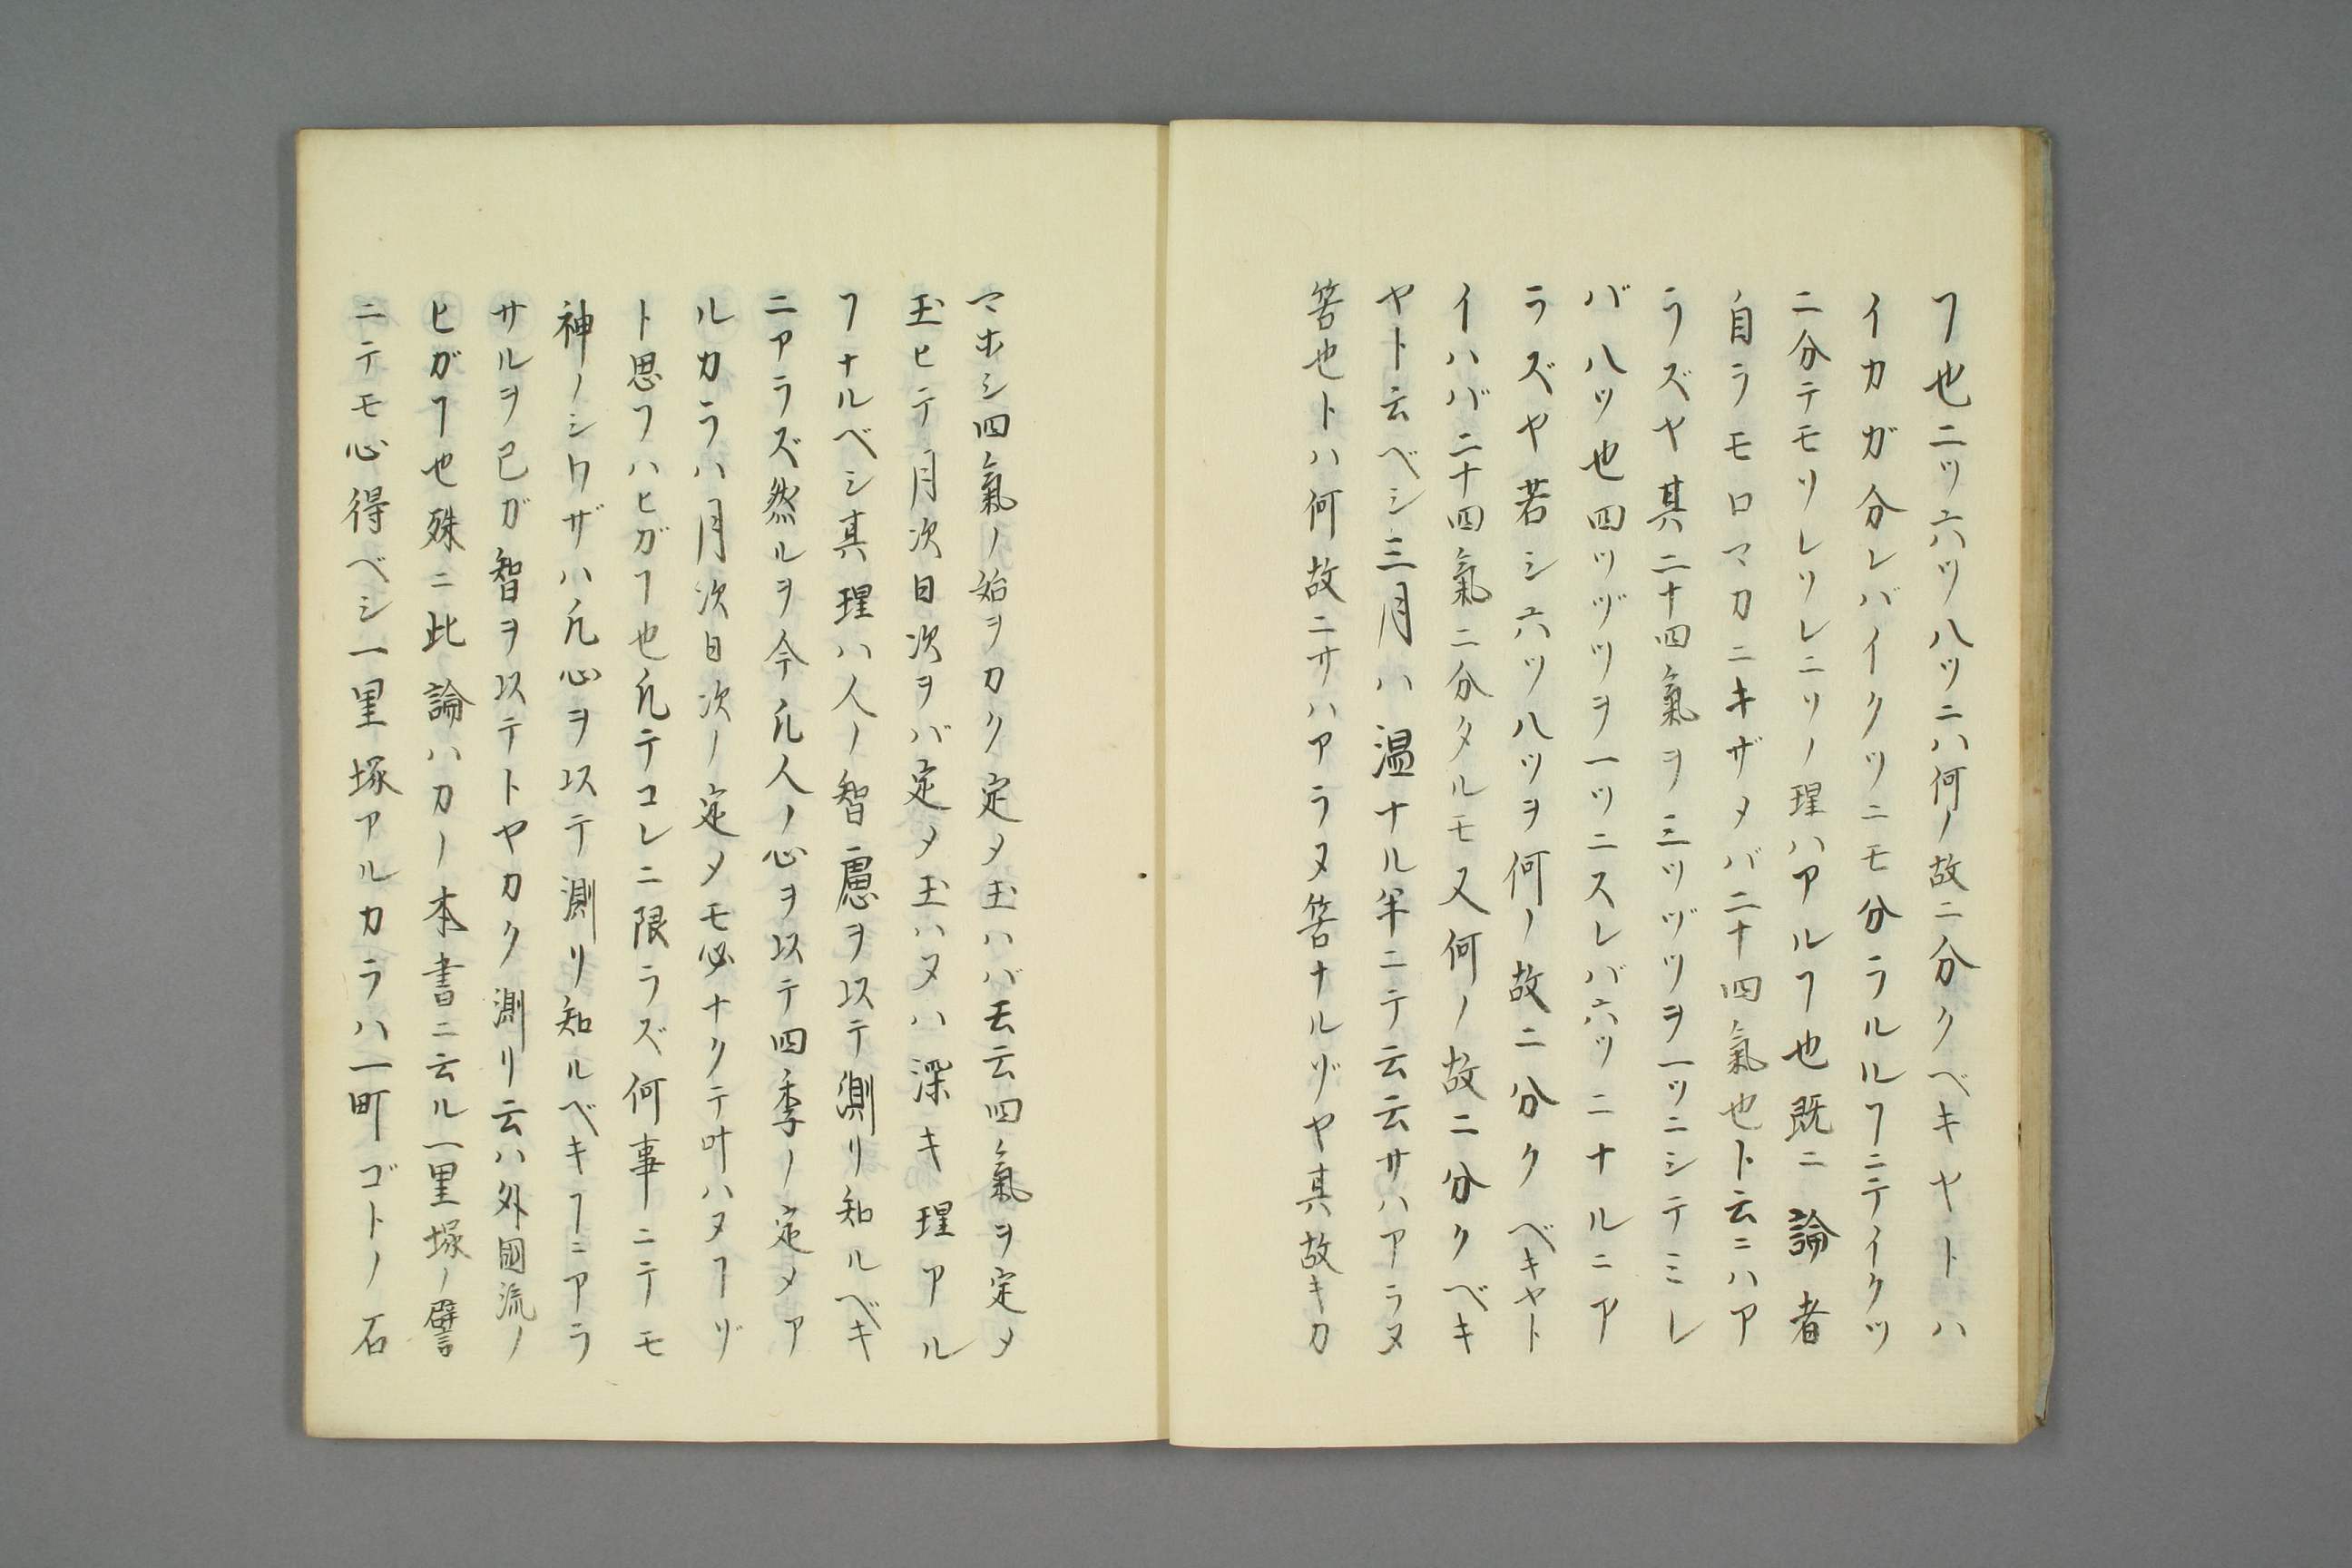 ヿ也二ツ六ツ八ツニハ何ノ故ニ分クベキヤトハ
イカガ分レバイクツニモ分ラルルヿニテイクツ
ニ分テモソレソレニソノ理ハアルヿ也既ニ論者
自ラモロマカニキザメバ二十四氣也ト云ニハア
ラズヤ其二十四氣ヲ三ツヅツヲ一ツニシテミレ
バ八ツ也四ツヅツヲ一ツニスレバ六ツニナルニア
ラズヤ若シ六ツ八ツヲ何ノ故ニ分クベキヤト
イハバ二十四氣ニ分タルモ又何ノ故ニ分クベキ
ヤト云ベシ三月ハ温ナル半ニテ云云サハアラヌ
筈也トハ何故ニサハアラヌ筈ナルゾヤ其故キカ
マホシ四氣ノ始ヲカク定メ玉ハバ云云四氣ヲ定メ
玉ヒテ月次日次ヲバ定メ玉ハヌハ深キ理アル
ヿナルベシ其理ハ人ノ智慮ヲ以テ測リ知ルベキ
ニアラズ然ルヲ今凡人ノ心ヲ以テ四季ノ定メア
ルカラハ月次日次ノ定メモ必ナクテ叶ハヌヿゾ
ト思フハヒガヿ也凡テコレニ限ラズ何事ニテモ
神ノシワザハ凡心ヲ以テ測リ知ルベキヿニアラ
サルヲ己ガ智ヲ以テトヤカク測リ云ハ外國流ノ
ヒガヿ也殊ニ此論ハカノ本書ニ云ル一里塚ノ譬
ニテモ心得ベシ一里塚アルカラハ一町ゴトノ石